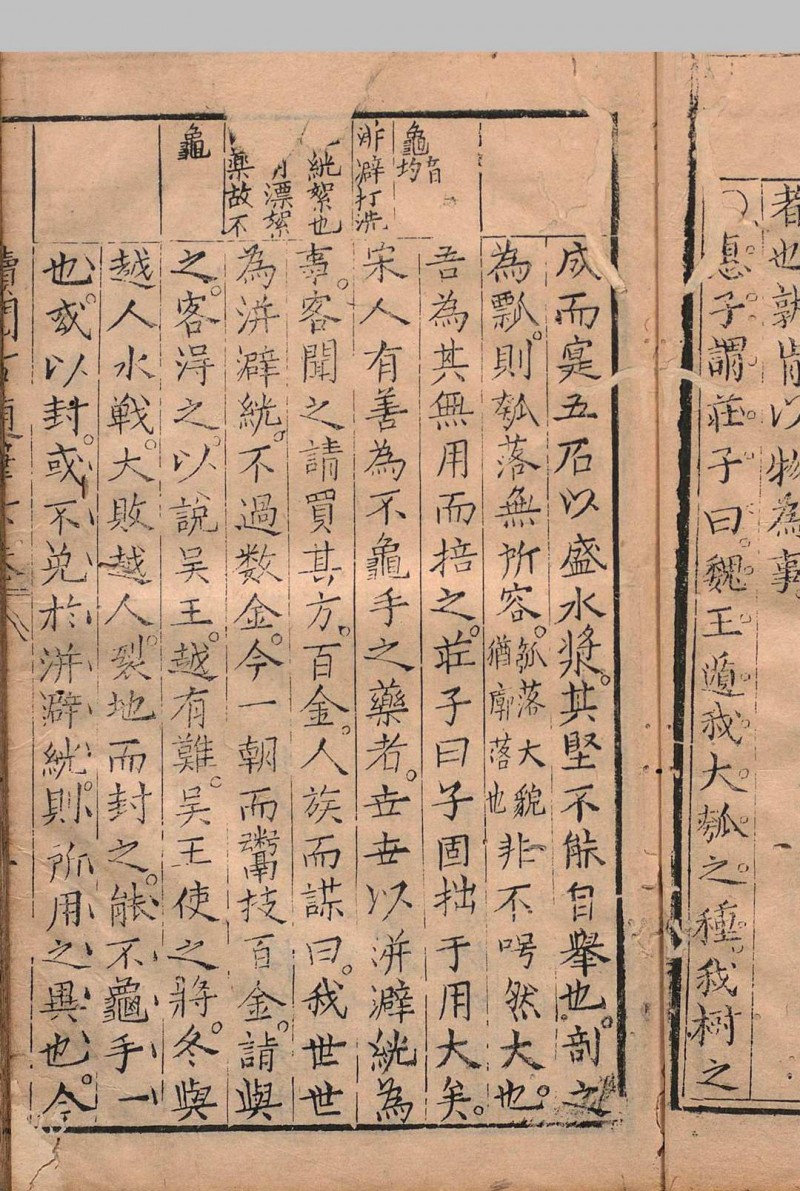 者也孰肯以物為事。
惠子謂莊子曰。魏王遺我大瓠之種。我樹之
成而寔五石以盛水漿。其堅不能自舉也。剖之
為瓢。則瓠落無所容。瓠落大貌猶廓落也非不呺然大也。
吾為其無用而掊之。莊子曰子固拙于用大矣。
宋人有善為不龜手之藥者。世世以洴澼絖為
事。客聞之請買其方。百金。人族而謀曰。我世世
為洴澼絖。不過数金。今一朝而鬻技百金。請與
之。客淂之。以說吴王。越有難。吴王使之將。冬。與
越人水戰。大敗越人。裂地而封之。能不龜手一
也。或以封。或不免於洴澼絖。則所用之異也。今
龜音均
洴澼打洗
絖絮也
漂絮
藥故不
龜